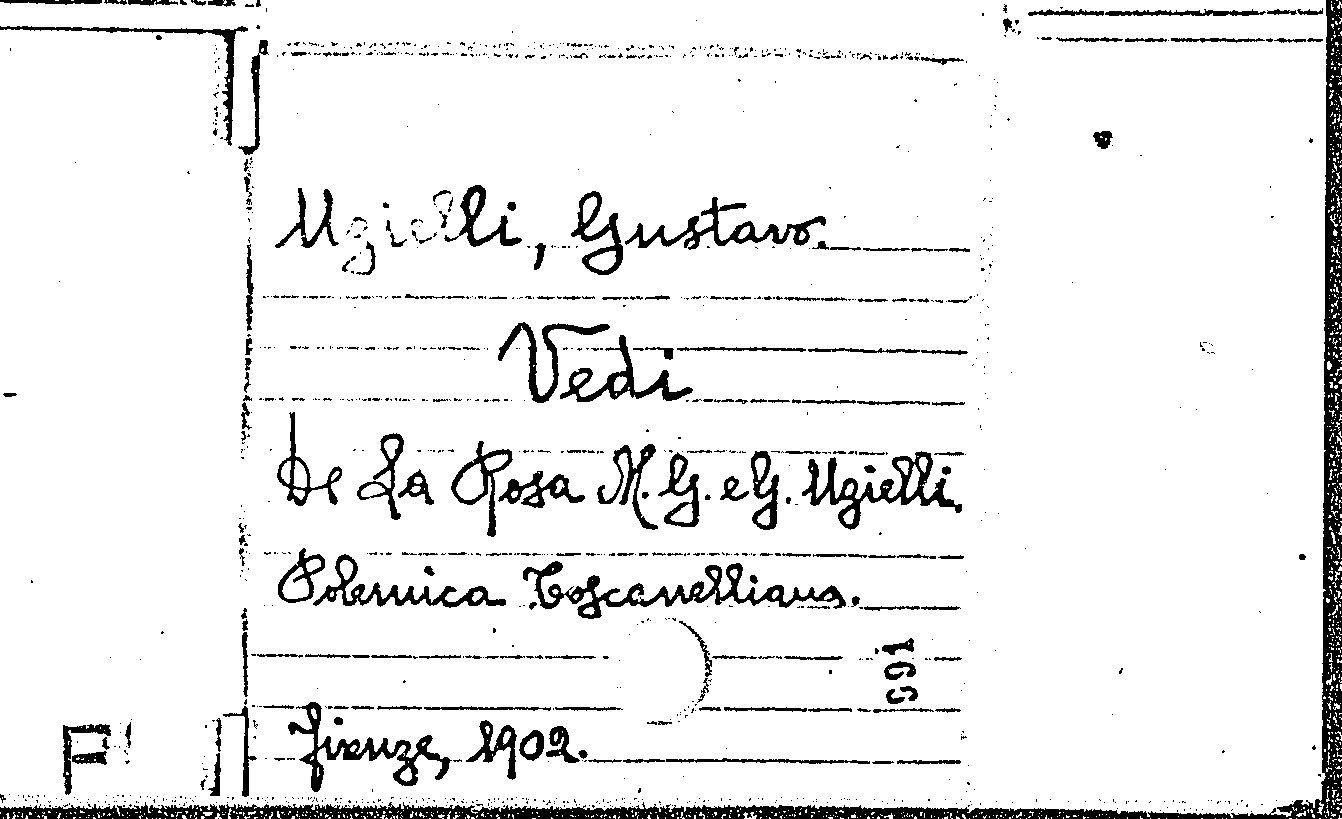 Uzielli, Gustavo.
Vedi
De La Rosa M. G. e G. Uzielli.
Polemica Toscanelliana.
Firenze, 1902.
F